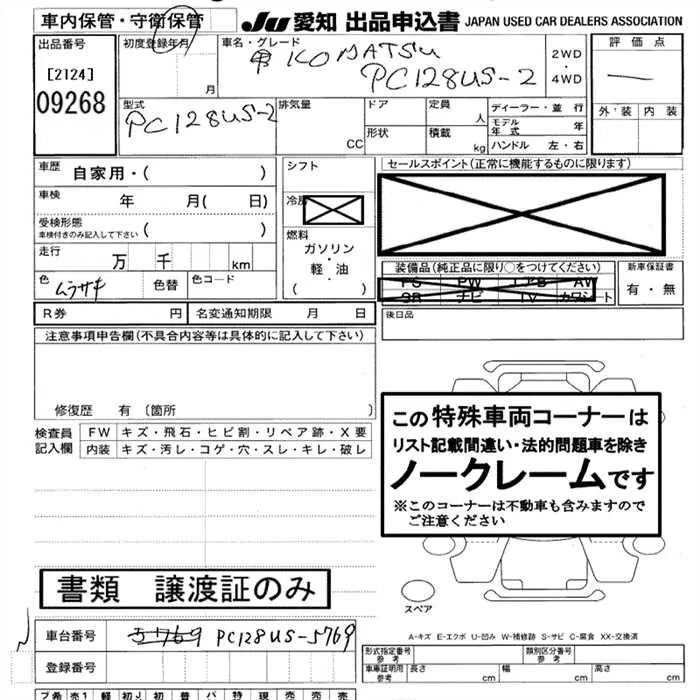 車内保管・守衛保管
JU 愛知 出品申込書 JAPAN USED CAR DEALERS ASSOCIATION
出品番号
[2124]
09268
初度登録年月
月
車名・グレード
KOMATSU
PC128US-2
2WD
・
4WD
評価点
外装 内装
型式
PC128US-2
排気量
CC
ドア
形状
定員
人
積載
kg
ディーラー・並行
モデル年式 年
ハンドル 左・右
車歴 自家用・( )
車検 年 月( 日)
受検形態
車検付きのみ記入して下さい ( )
走行 万 千 km
色 ムラサキ 色替 色コード
シフト
燃料
ガソリン
・
軽・油
( )
セールスポイント(正常に機能するものに限ります)
装備品(純正品に限り○をつけてください)
PS PW エアB AW
SR ナビ TV カワシート
新車保証書
有・無
R券 円 名変通知期限 月 日
後日品
注意事項申告欄(不具合内容等は具体的に記入して下さい)
修復歴 有 〔箇所 〕
検査員記入欄
FW キズ・飛石・ヒビ割・リペア跡・X要
内装 キズ・汚レ・コゲ・穴・スレ・キレ・破レ
この特殊車両コーナーは
リスト記載間違い・法的問題車を除き
ノークレームです
※このコーナーは不動車も含みますので
ご注意ください
書類 譲渡証のみ
スペア
A-キズ E-エクボ U-凹み W-補修跡 S-サビ C-腐食 XX-交換済
車台番号 5769 PC128US-5769
登録番号
形式指定番号
参考
類別区分番号
参考
車庫証明用
参考
長さ cm 幅 cm 高さ cm